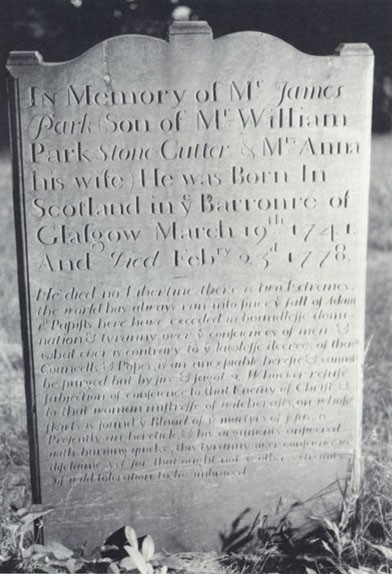 In Memory of Mr James
Park (Son of Mr William
Park Stone Cutter & Mrs Anna
his wife) He was Born In
Scotland in ye Barronre of
Glasgow March 19th 1741.
And Died Febry 23d 1778.
He died no Libertine there is two Extremes
the world has always run into since ye fall of Adam
Papists here have exceeded in boundless domi-
nation & tyranny over ye consciences of men &
what ever is contrary to ye lawless decrees of their
Councells & Popes, is an unexpiable heresie & cannot
be purged but by fire & fagot. Whoever refuse
subjection of conscience to that Enemy of Christ &
to that woman mistresse of witchcrafts, on whose
skirts is found ye Blood of ye martyrs of Jesus, is
Presently an heretick, & his arguments answered
with burning quicke, this tyranny over conscience we
disclame yet for that ought not ye other extremity
of wild toleration to be imbraced.